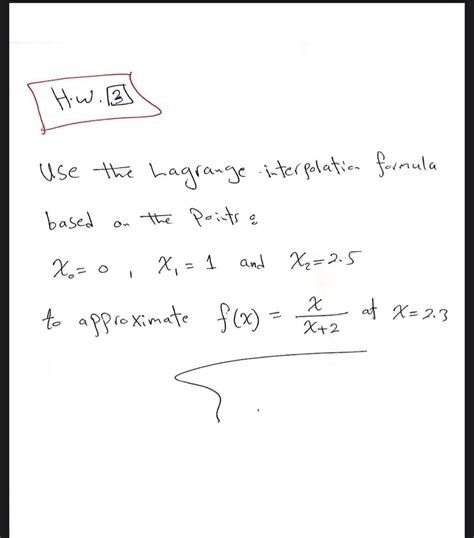 H.W. 3
Use the Lagrange interpolation formula
based on the Points:
x₀ = 0 , x₁ = 1 and x₂ = 2.5
to approximate f(x) = x/(x+2) at x = 2.3